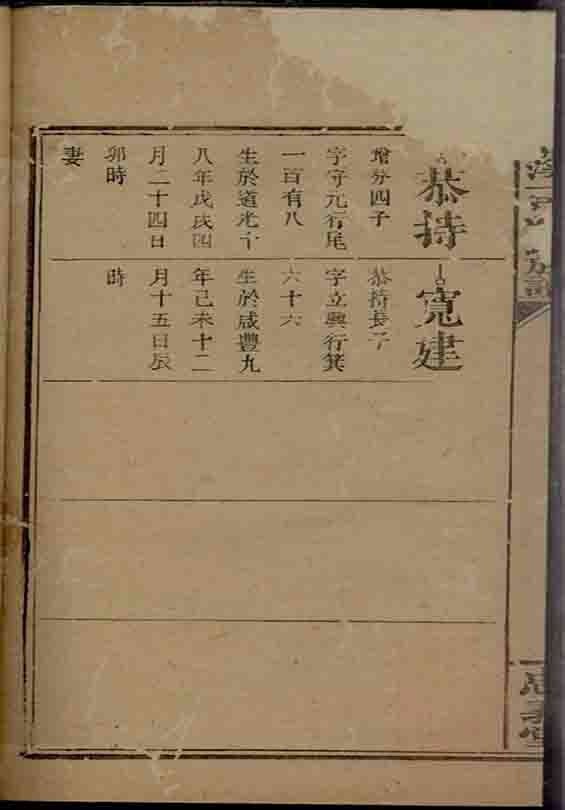 恭持
增分四子
字守元行尾
一百有八
生於道光十
八年戊戌四
月二十四日
卯時
妻
寬建
恭持長子
字立興行箕
六十六
生於咸豐九
年己未十二
月十五日辰
時